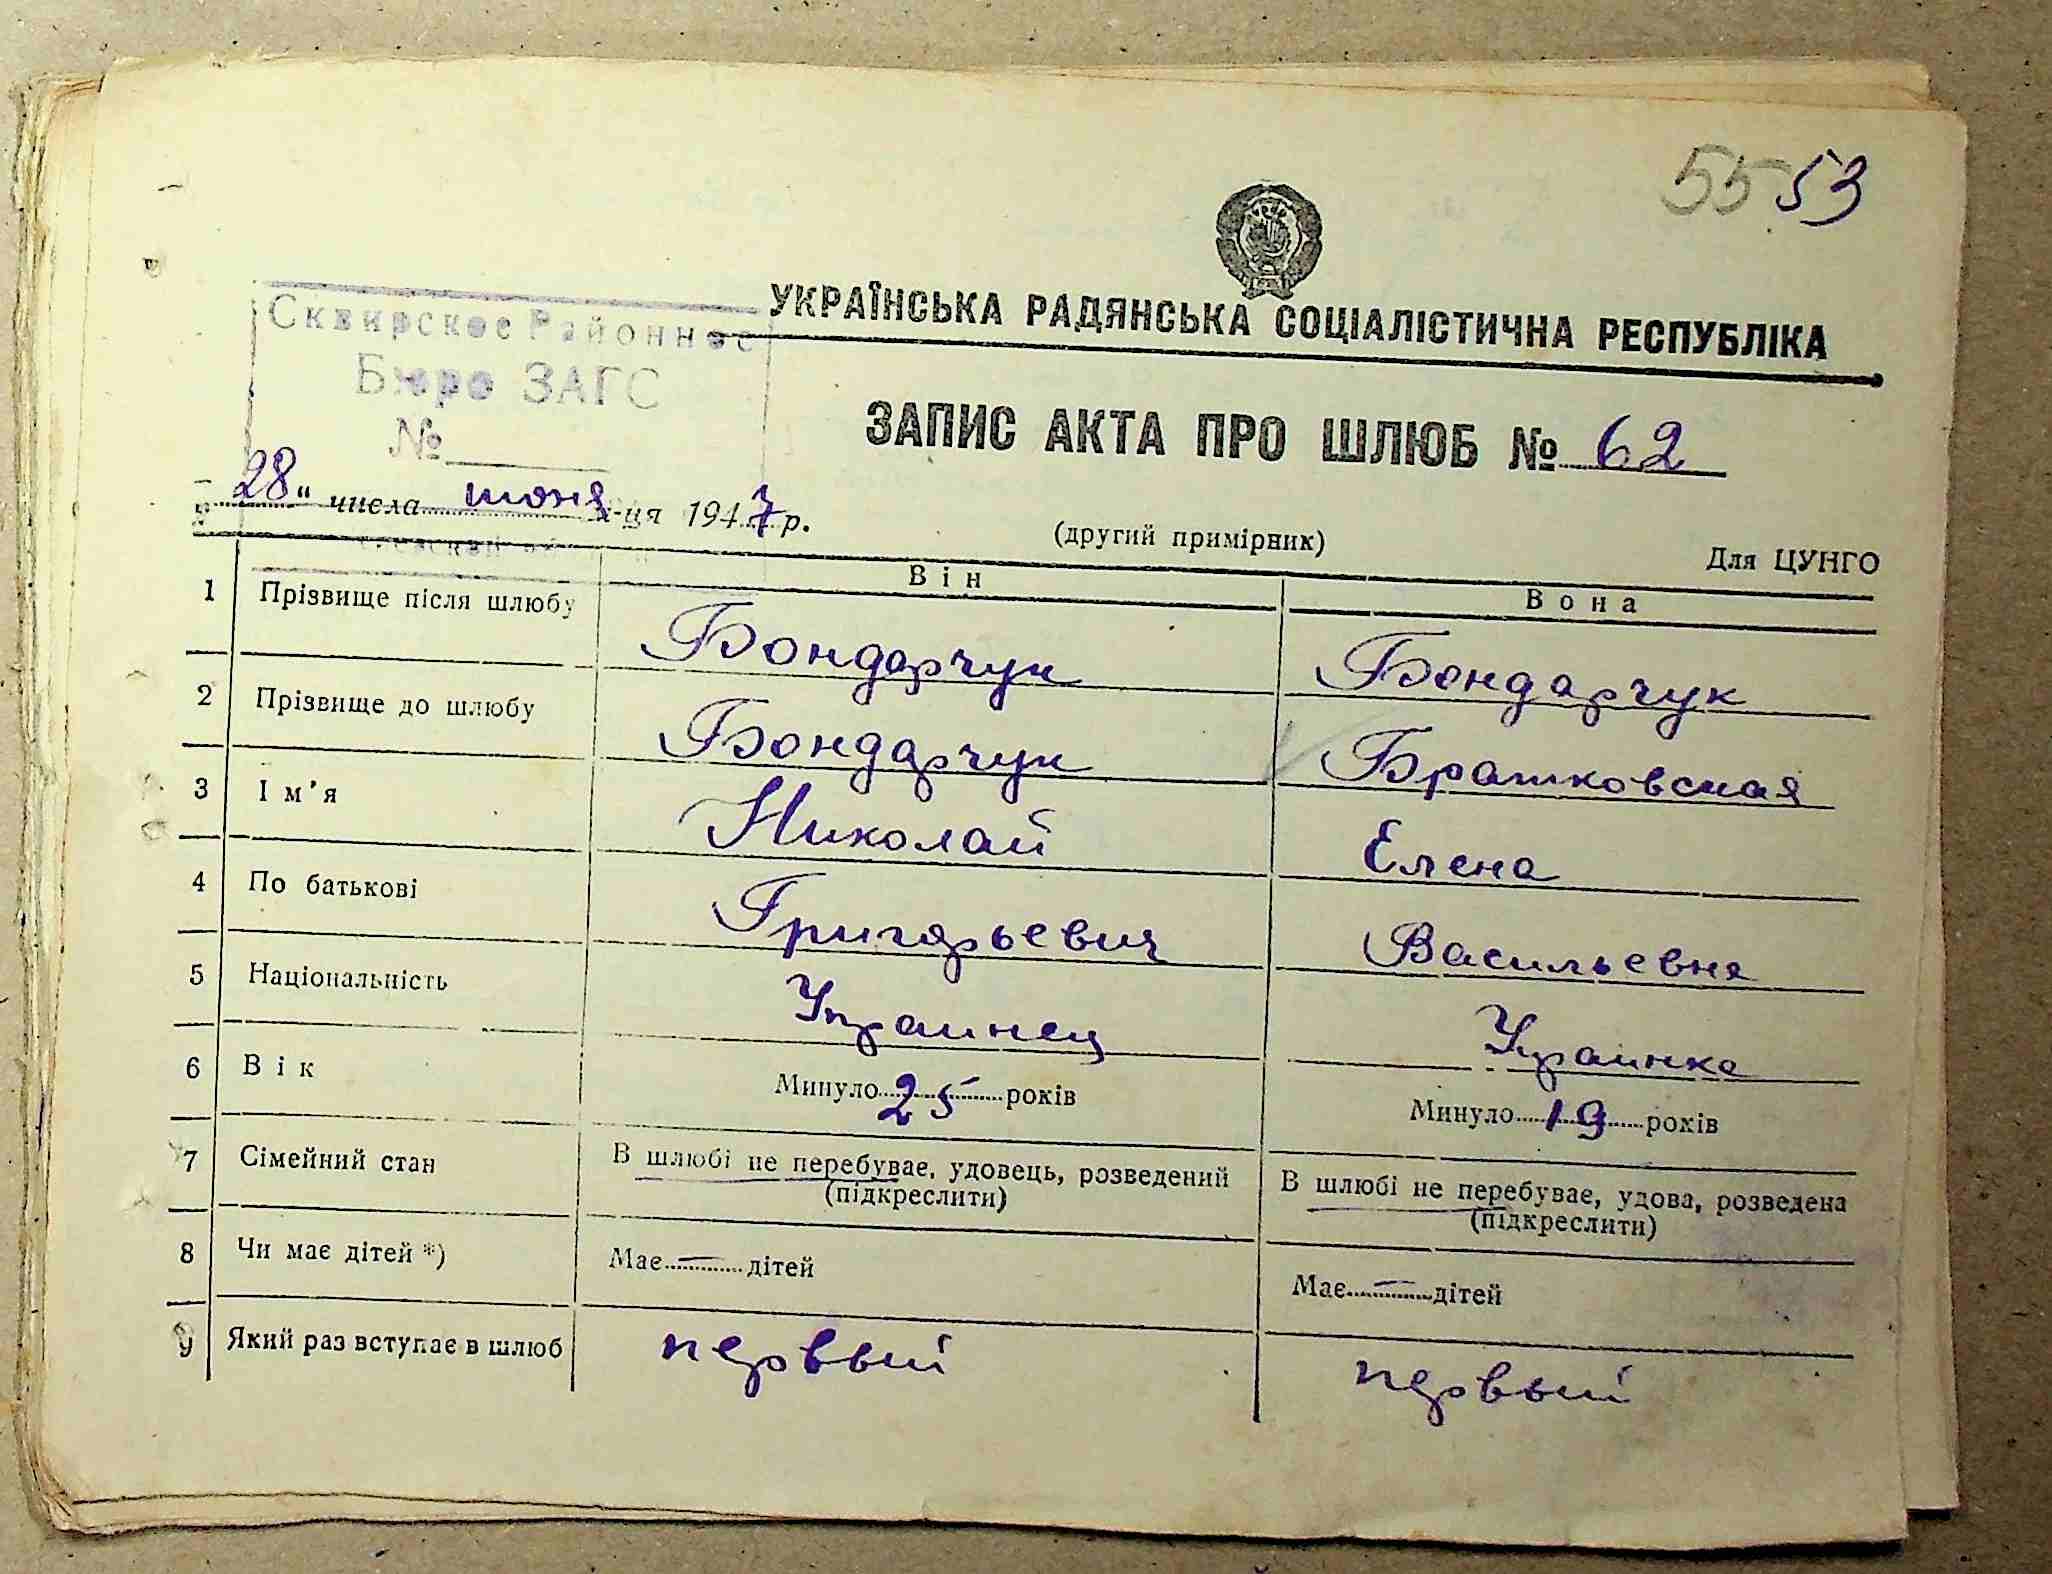 55 53
УКРАЇНСЬКА РАДЯНСЬКА СОЦІАЛІСТИЧНА РЕСПУБЛІКА
Сквирское Районное
Бюро ЗАГС
№
ЗАПИС АКТА ПРО ШЛЮБ № 62
28 " числа июня м-ця 1947 р.
(другий примірник)
Для ЦУНГО
Він Вона
1 Прізвище після шлюбу Бондарчук Бондарчук
2 Прізвище до шлюбу Бондарчук Братковская
3 Ім'я Николай Елена
4 По батькові Григорьевич Васильевна
5 Національність Украинец Украинка
6 Вік Минуло 25 років Минуло 19 років
7 Сімейний стан В шлюбі не перебуває, удовець, розведений В шлюбі не перебуває, удова, розведена
(підкреслити) (підкреслити)
8 Чи має дітей *) Має — дітей Має — дітей
9 Який раз вступає в шлюб первый первый